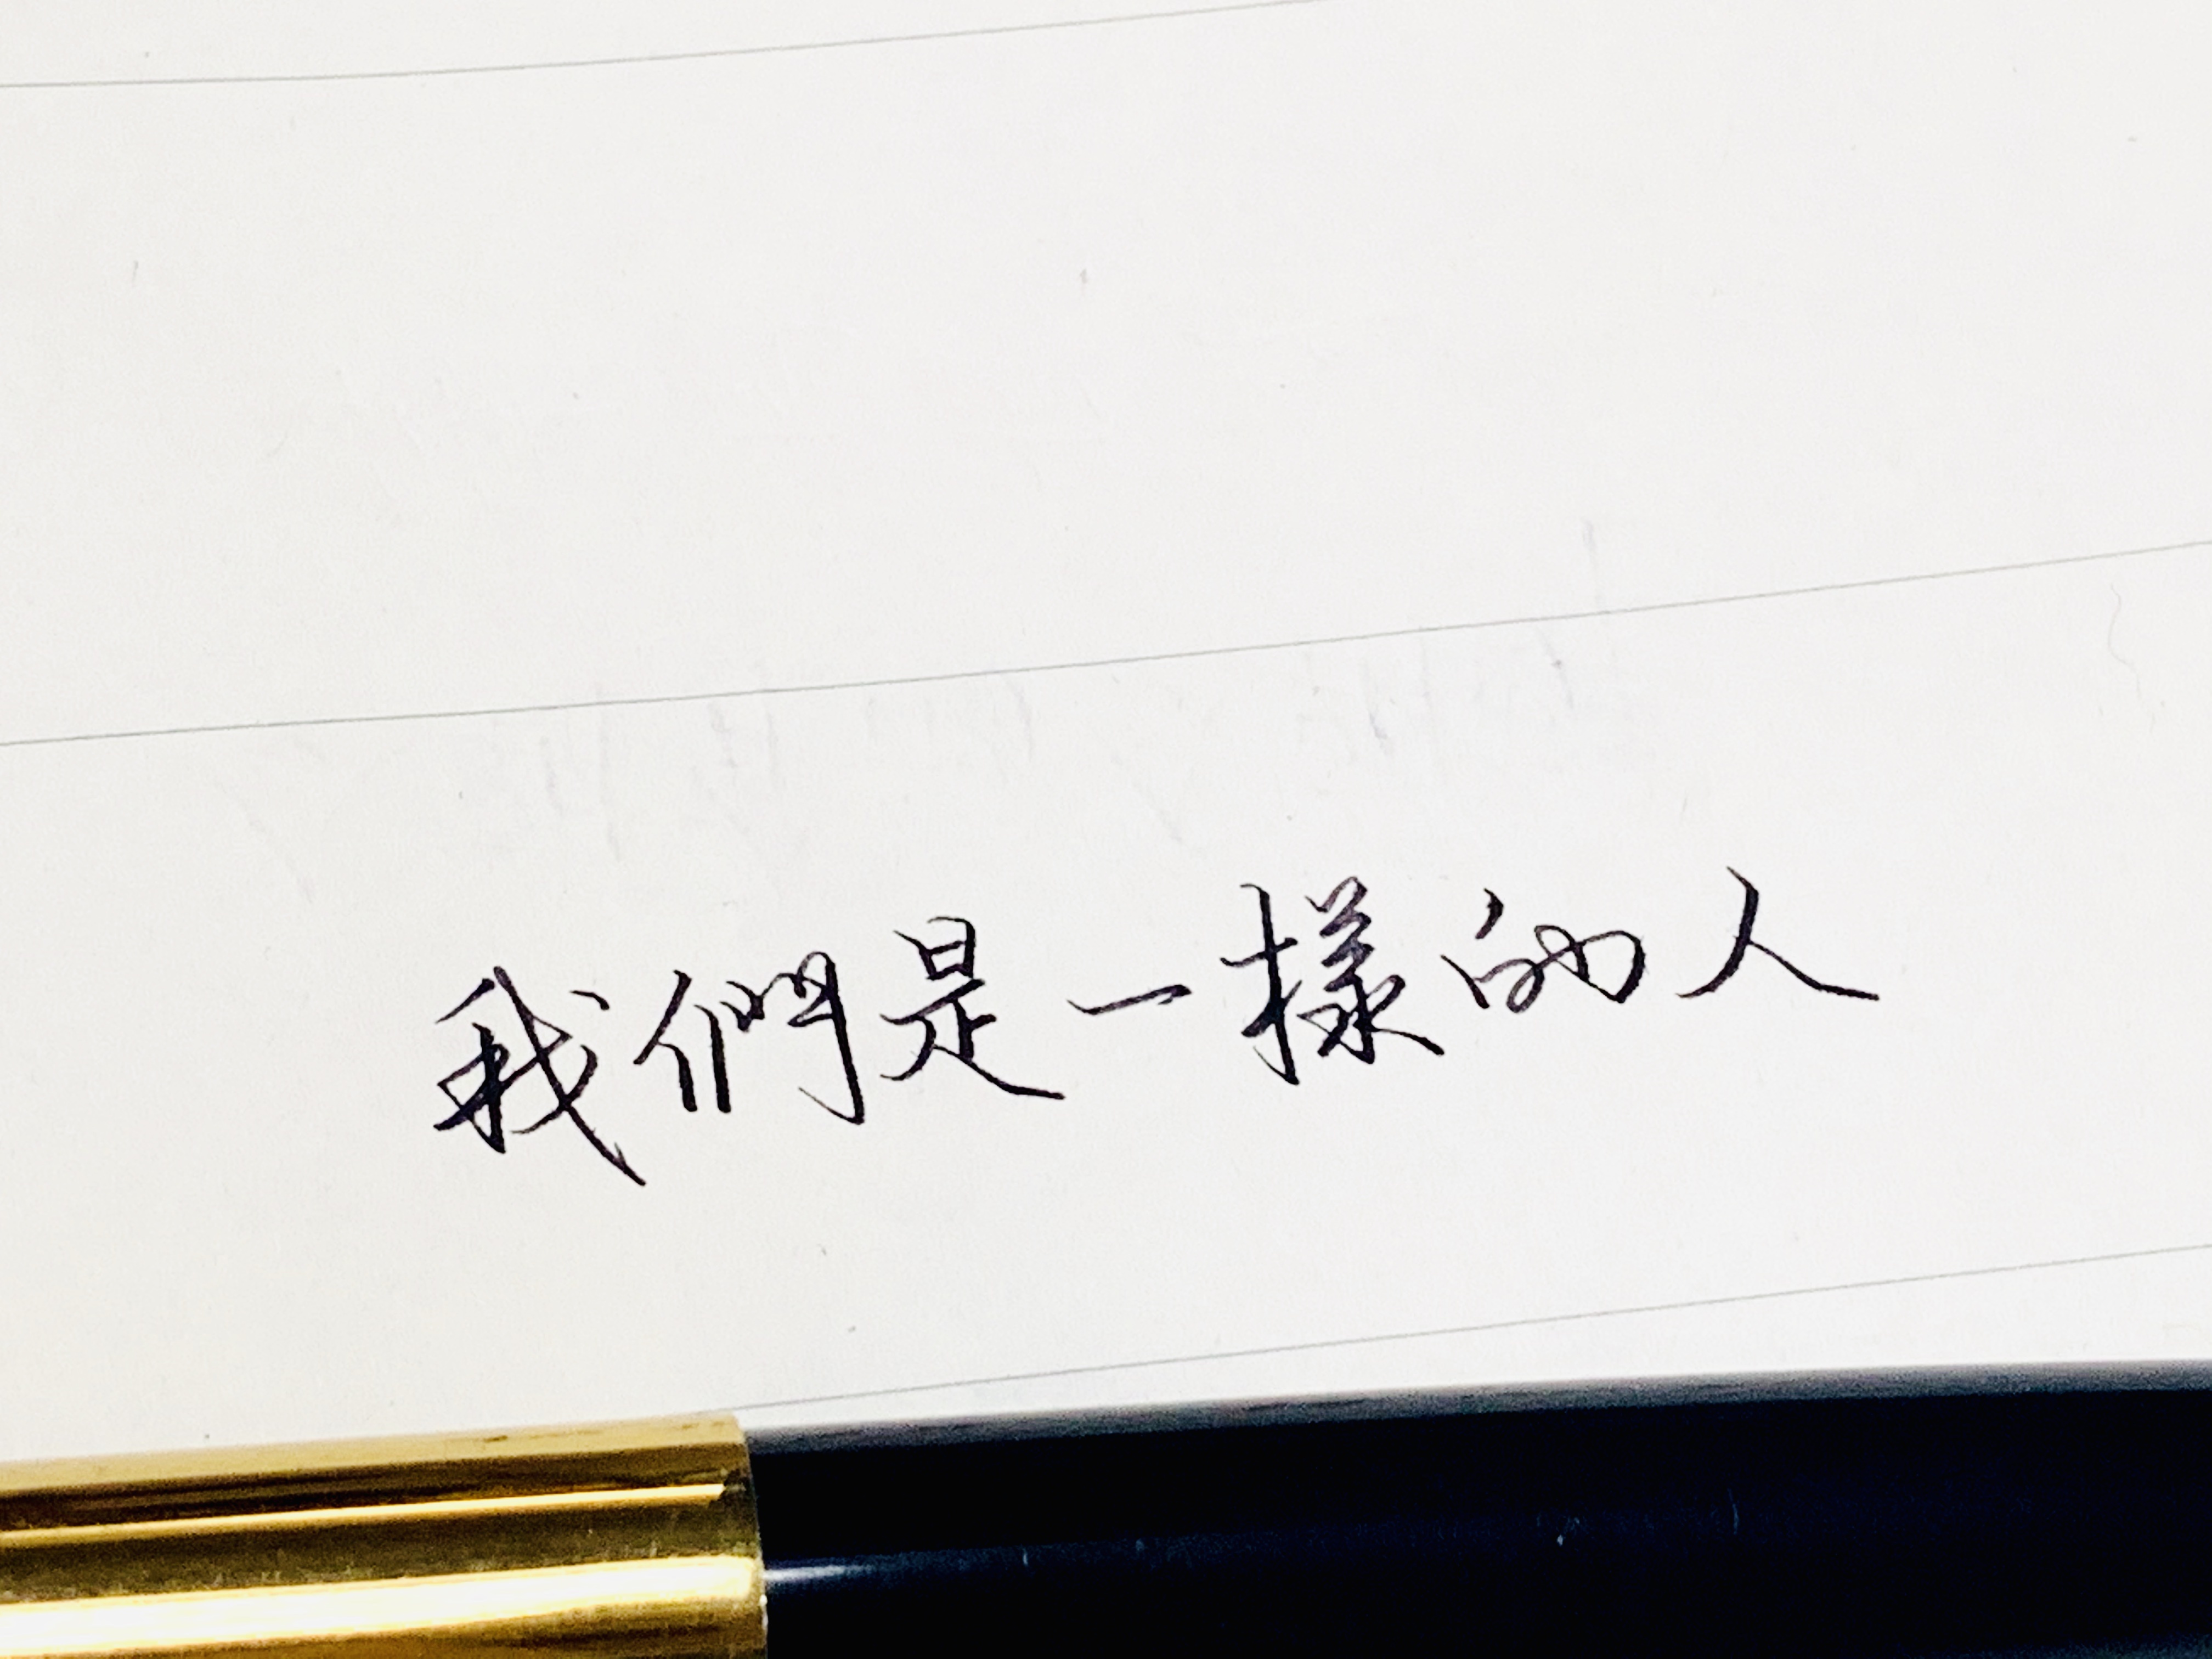 我們是一樣的人